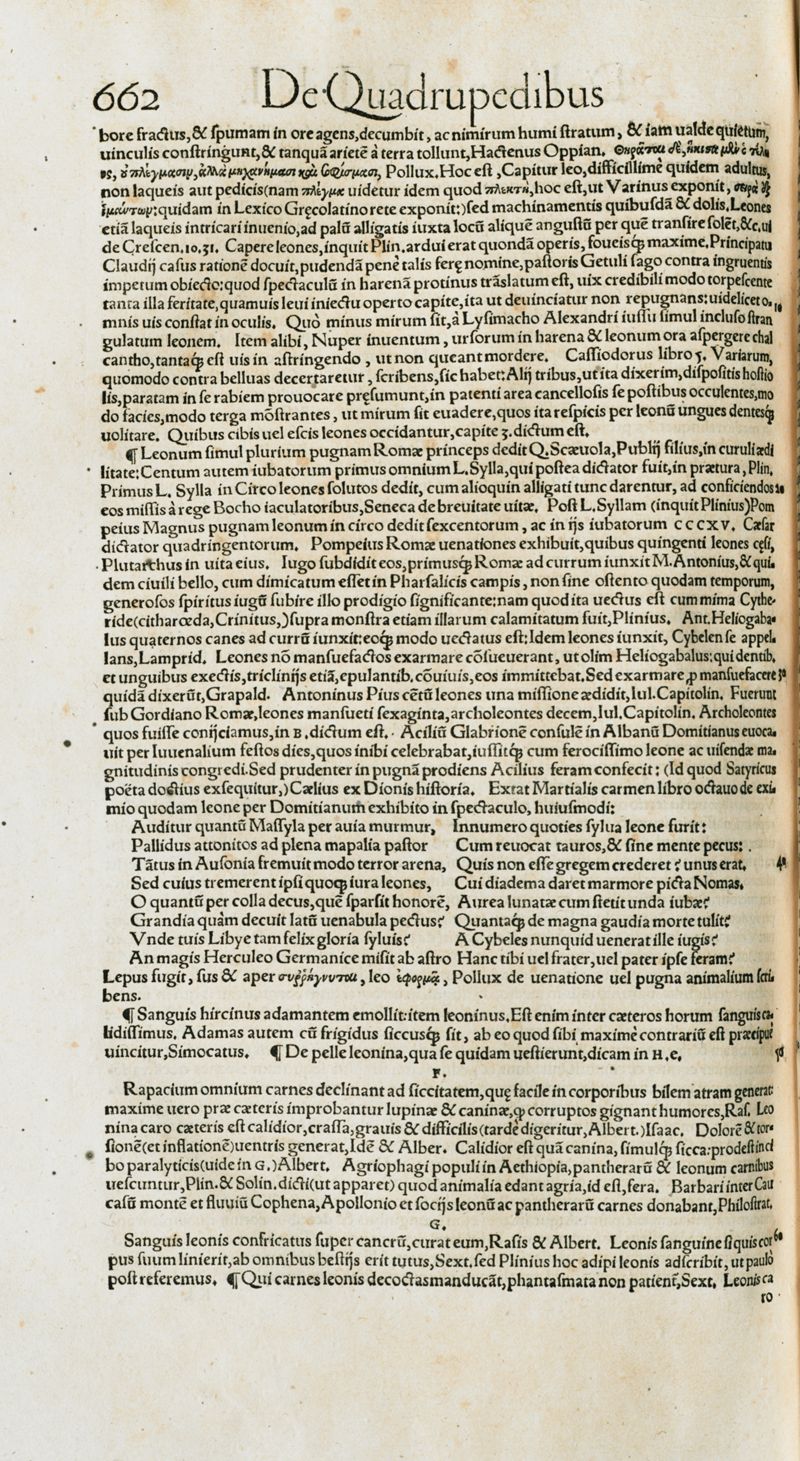 662 De Quadrupedibus
bore fractus,& ſpumam in ore agens,decumbit, ac nimirum humi ſtratum, & iam ualde quietum,
uinculis conſtringunt,& tanquã arietẽ à terra tollunt,Hactenus Oppian.
Pollux.Hoc eſt ,Capitur leo,difficillimè quidem adultus,
non laqueis aut pedicis(nam πλέγμα uidetur idem quod πλεκτὴ,hoc eſt,ut Varinus exponit,
:quidam in Lexico Gręcolatino rete exponit:)ſed machinamentis quibuſdã & dolis.Leones
etiã laqueis intricari inuenio,ad palũ alligatis iuxta locũ aliquẽ anguſtũ per quẽ tranſire ſolẽt,&c.ui
de Creſcen.10.31. Capere leones,inquit Plin.ardui erat quondã operis, foueisq́ꝫ maxime.Principatu
Claudij caſus rationẽ docuit,pudendã penè talis ferę nomine,paſtoris Getuli ſago contra ingruentis
impetum obiecto:quod ſpectaculũ in harenã protinus trãslatum eſt, uix credibili modo torpeſcente
tanta illa feritate,quamuis leui iniectu operto capite,ita ut deuinciatur non repugnans:uidelicet o⸗ 10
mnis uis conſtat in oculis. Quò minus mirum ſit,à Lyſimacho Alexandri iuſſu ſimul incluſo ſtran
gulatum leonem. Item alibi, Nuper inuentum, urſorum in harena & leonum ora aſpergere chal
cantho,tantaq́ꝫ eſt uis in aſtringendo , ut non queant mordere. Caſſiodorus libro 5. Variarum,
quomodo contra belluas decertaretur, ſcribens,ſic habet:Alij tribus,ut ita dixerim,diſpoſitis hoſtio
lis,paratam in ſe rabiem prouocare pręſumunt,in patenti area cancelloſis ſe poſtibus occulentes,mo
do facies,modo terga mõſtrantes, ut mirum ſit euadere,quos ita reſpicis per leonũ ungues dentesq́ꝫ
uolitare. Quibus cibis uel eſcis leones occidantur,capite 3.dictum eſt.
¶ Leonum ſimul plurium pugnam Romæ princeps dedit Q.Scæuola,Publij filius,in curuli ædi
litate:Centum autem iubatorum primus omnium L.Sylla,qui poſtea dictator fuit,in prætura, Plin.
Primus L. Sylla in Circo leones ſolutos dedit, cum alioquin alligati tunc darentur, ad conficiendos 20
eos miſſis à rege Bocho iaculatoribus,Seneca de breuitate uitæ. Poſt L.Syllam (inquit Plinius)Pom
peius Magnus pugnam leonum in circo dedit ſexcentorum, ac in ijs iubatorum CCCXV. Cæſar
dictator quadringentorum. Pompeius Romæ uenationes exhibuit,quibus quingenti leones cęſi,
Plutarchus in uita eius. Iugo ſubdidit eos,primusq́ꝫ Romæ ad currum iunxit M.Antonius,& qui⸗
dem ciuili bello, cum dimicatum eſſet in Pharſalicis campis, non ſine oſtento quodam temporum,
generoſos ſpiritus iugũ ſubire illo prodigio ſignificante:nam quod ita uectus eſt cum mima Cythe⸗
ride(citharœda,Crinitus,)ſupra monſtra etiam illarum calamitatum fuit,Plinius. Ant.Heliogaba⸗
lus quaternos canes ad currũ iunxit:eoq́ꝫ modo uectatus eſt:Idem leones iunxit, Cybelen ſe appel⸗
lans,Lamprid. Leones nõ manſuefactos exarmare cõſueuerant, ut olim Heliogabalus:qui dentib.
et unguibus exectis,triclinijs etiã,epulantib.cõuiuis,eos immittebat.Sed exarmare ꝓ manſuefacere 30
quidã dixerũt,Grapald. Antoninus Pius cẽtũ leones una miſſione ædidit,Iul.Capitolin. Fuerunt
ſub Gordiano Romæ,leones manſueti ſexaginta,archoleontes decem,Iul.Capitolin. Archoleontes
quos fuiſſe conijciamus,in B.dictum eſt. Aciliũ Glabrionẽ conſulẽ in Albanũ Domitianus euoca⸗
uit per Iuuenalium feſtos dies,quos inibi celebrabat,iuſſitq́ꝫ cum ferociſſimo leone ac uiſendæ ma⸗
gnitudinis congredi.Sed prudenter in pugnã prodiens Acilius feram confecit: (Id quod Satyricus
poëta doctius exſequitur,)Cælius ex Dionis hiſtoria. Extat Martialis carmen libro octauo de exi⸗
mio quodam leone per Domitianum exhibito in ſpectaculo, huiuſmodi:
Auditur quantũ Maſſyla per auia murmur, Innumero quoties ſylua leone furit:
Pallidus attonitos ad plena mapalia paſtor Cum reuocat tauros,& ſine mente pecus:
Tãtus in Auſonia fremuit modo terror arena, Quis non eſſe gregem crederet? unus erat. 40
Sed cuius tremerent ipſi quoq́ꝫ iura leones, Cui diadema daret marmore picta Nomas.
O quantũ per colla decus,quẽ ſparſit honorẽ, Aurea lunatæ cum ſtetit unda iubæ?
Grandia quàm decuit latũ uenabula pectus? Quantaq́ꝫ de magna gaudia morte tulit?
Vnde tuis Libye tam felix gloria ſyluis? A Cybeles nunquid uenerat ille iugis?
An magis Herculeo Germanice miſit ab aſtro Hanc tibi uel frater,uel pater ipſe feram?
Lepus fugit, ſus & aper συῤῥήγνυται, leo ἐφορμᾷ, Pollux de uenatione uel pugna animalium ſcri
bens.
¶ Sanguis hircinus adamantem emollit:item leoninus.Eſt enim inter cæteros horum ſanguis ca⸗
lidiſſimus. Adamas autem cũ frigidus ſiccusq́ꝫ ſit, ab eo quod ſibi maximè contrariũ eſt præcipuè
uincitur,Simocatus. ¶ De pelle leonina,qua ſe quidam ueſtierunt,dicam in H.e. 50
F.
Rapacium omnium carnes declinant ad ſiccitatem,quę facile in corporibus bilem atram generat:
maxime uero præ cæteris improbantur lupinæ & caninæ,ꝙ corruptos gignant humores,Raſ. Leo
nina caro cæteris eſt calidior,craſſa,grauis & difficilis(tardè digeritur,Albert.)Iſaac. Dolorẽ & tor⸗
ſionẽ(et inflationẽ)uentris generat,Idẽ & Alber. Calidior eſt quã canina, ſimulq́ꝫ ſicca:prodeſt inci
bo paralyticis(uide in G.)Albert. Agriophagi populi in Aethiopia,pantherarũ & leonum carnibus
ueſcuntur,Plin.& Solin.dicti(ut apparet) quod animalia edant agria,id eſt,fera. Barbari inter Cau
caſũ montẽ et fluuiũ Cophena,Apollonio et ſocijs leonũ ac pantherarũ carnes donabant,Philoſtrat.
G.
Sanguis leonis confricatus ſuper cancrũ,curat eum,Raſis & Albert. Leonis ſanguine ſi quis cor 60
pus ſuum linierit,ab omnibus beſtijs erit tutus,Sext.ſed Plinius hoc adipi leonis adſcribit, ut paulò
poſt referemus. ¶ Qui carnes leonis decoctas manducãt,phantaſmata non patient̃,Sext. Leonis ca
ro